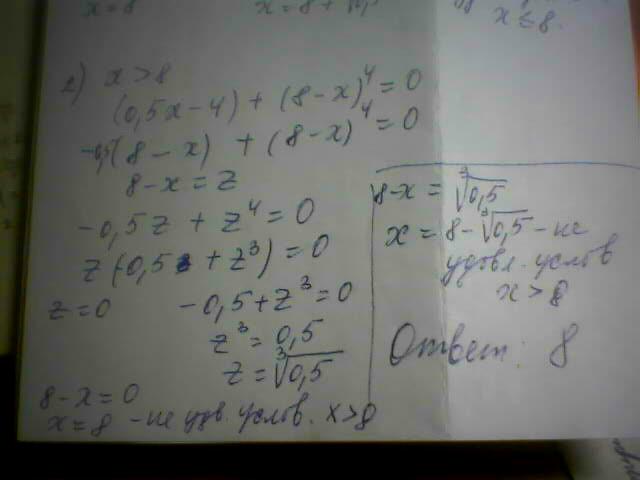 x=8
x=8+
x≤8.
2) x>8
(0,5x-4)+(8-x)⁴=0
-0,5(8-x)+(8-x)⁴=0
8-x=z
-0,5z+z⁴=0
z(-0,5+z³)=0
z=0 -0,5+z³=0
z³=0,5
z=∛0,5
8-x=0
x=8 -не удв. услов. x>8
8-x=∛0,5
x=8-∛0,5-не
удовл. услов
x>8
Ответ: 8